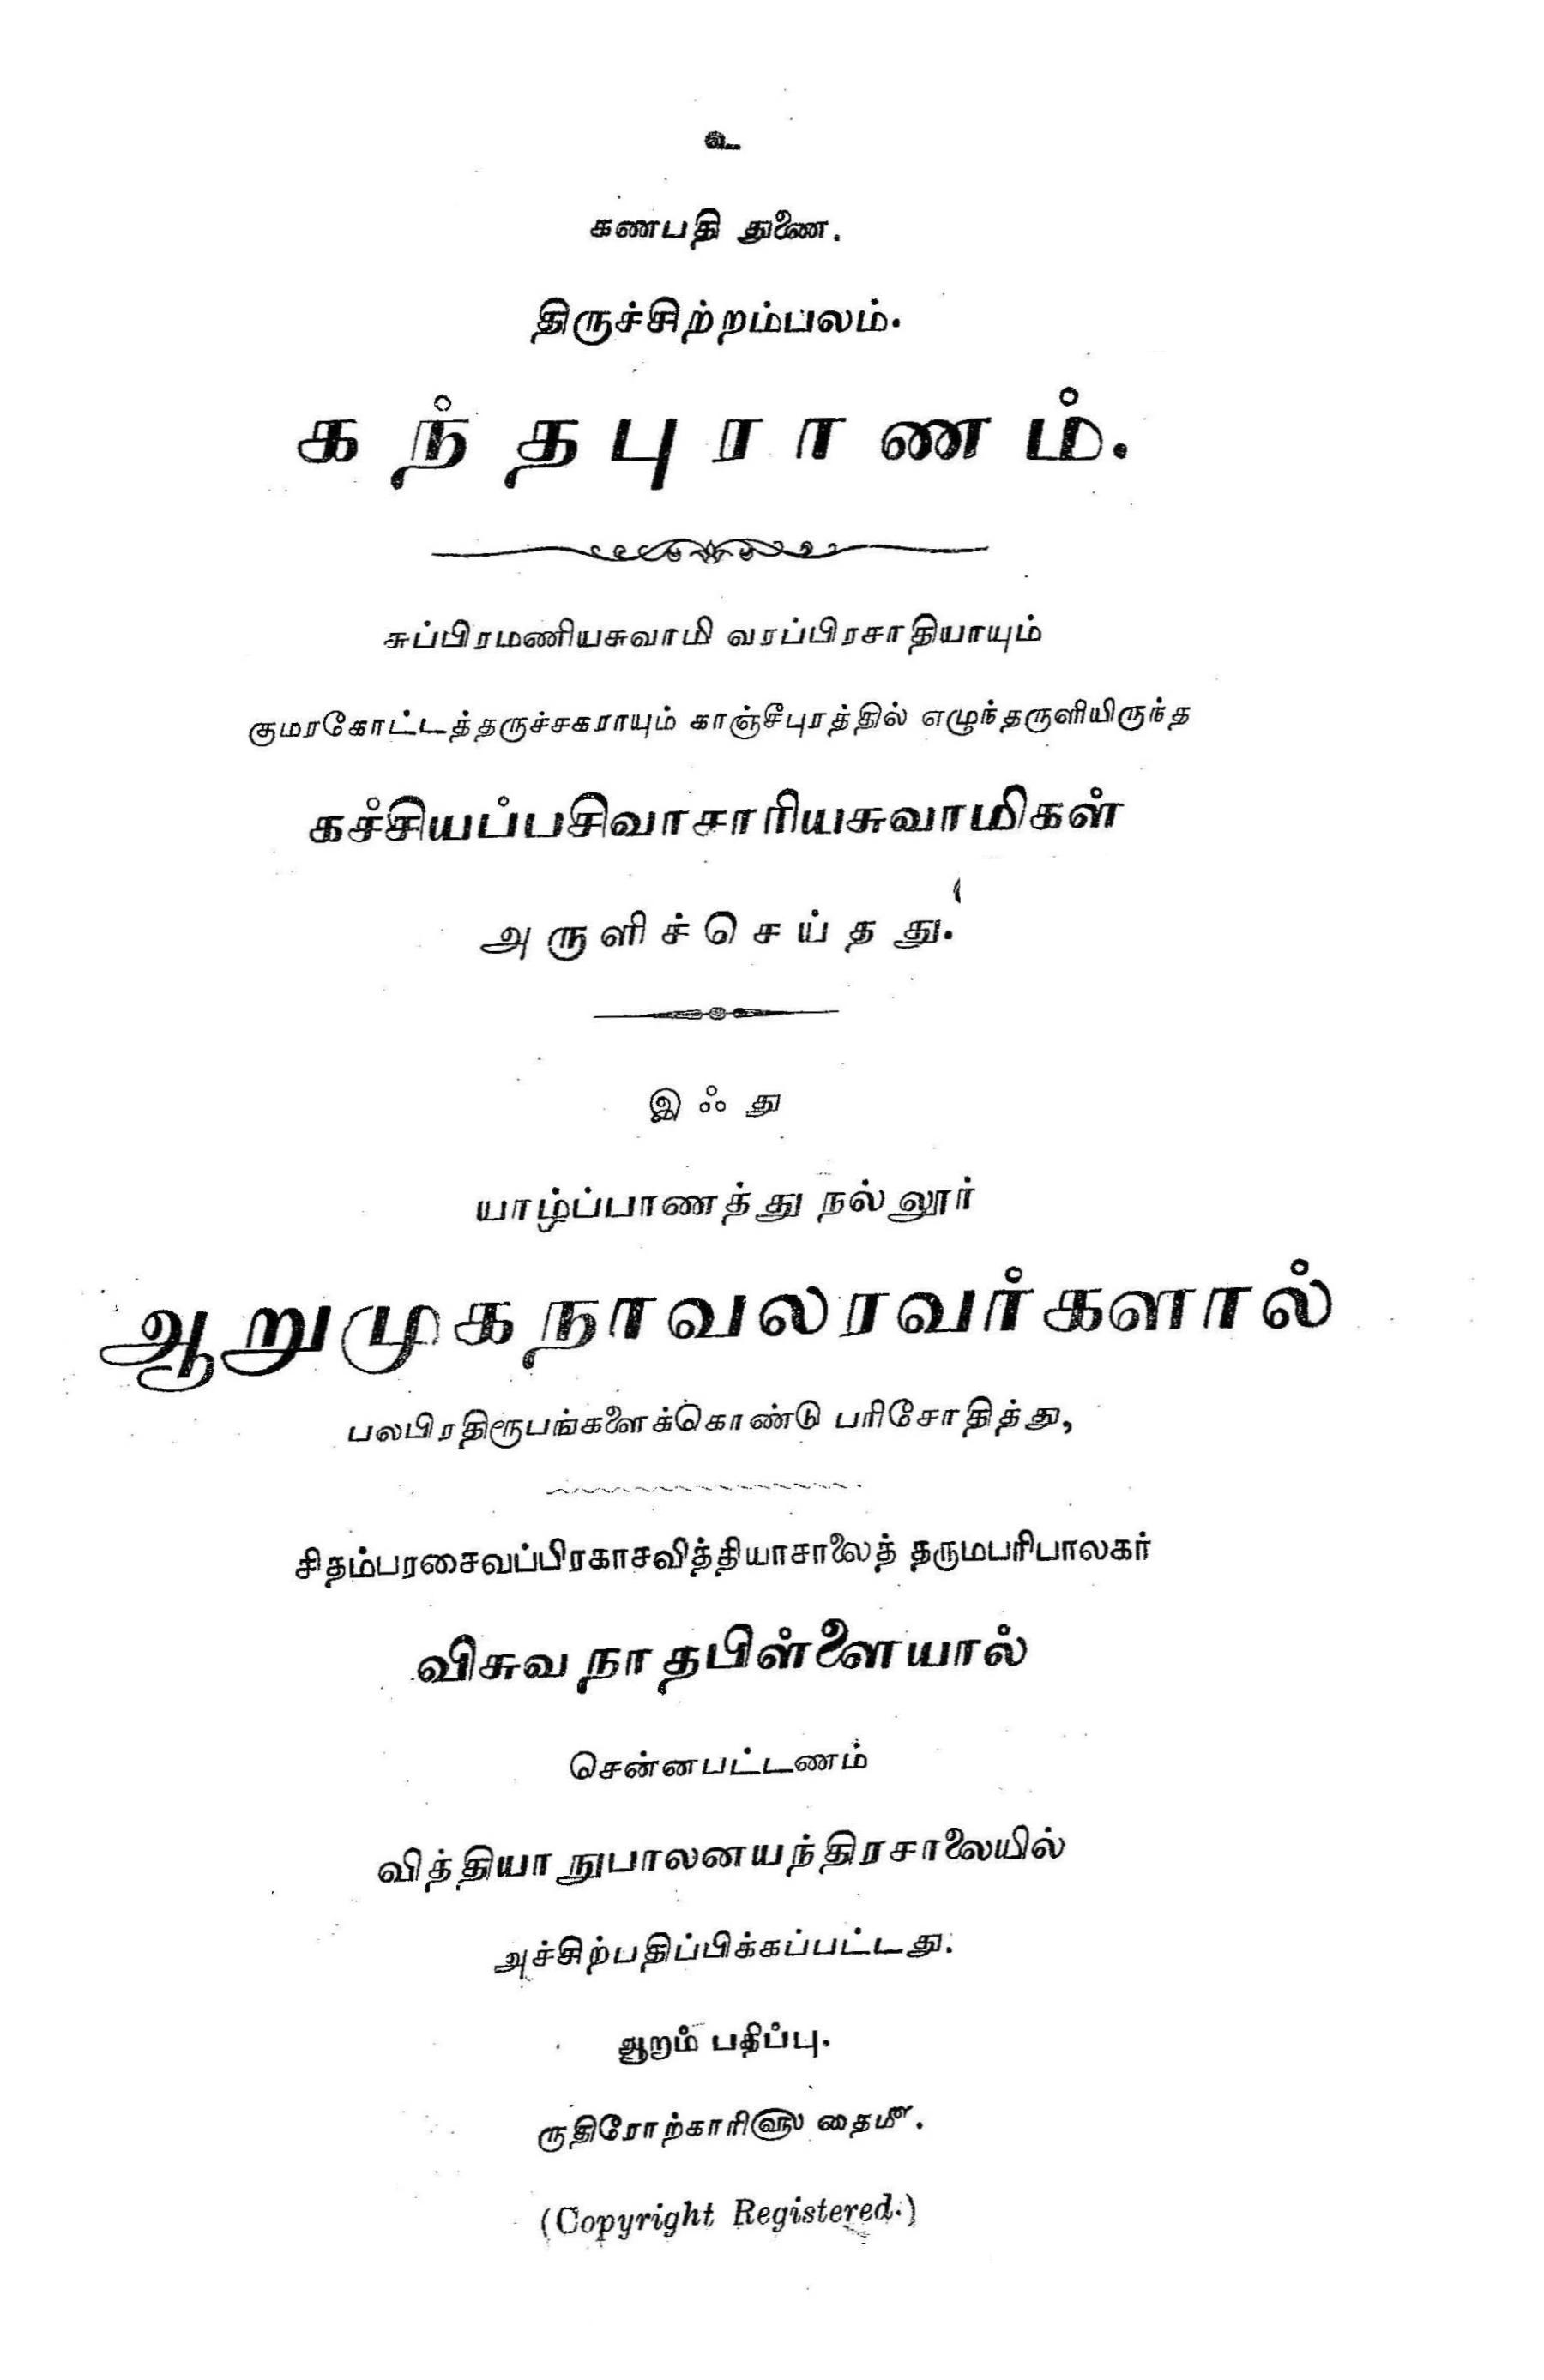 உ
கணபதி துணை.
திருச்சிற்றம்பலம்.
கந்தபுராணம்.
சுப்பிரமணியசுவாமி வரப்பிரசாதியாயும்
குமரகோட்டத்தருச்சகராயும் காஞ்சீபுரத்தில் எழுந்தருளியிருந்த
கச்சியப்பசிவாசாரியசுவாமிகள்
அருளிச்செய்தது.
இஃது
யாழ்ப்பாணத்து நல்லூர்
ஆறுமுகநாவலரவர்களால்
பலபிரதிரூபங்களைக்கொண்டு பரிசோதித்து,
சிதம்பரசைவப்பிரகாசவித்தியாசாலைத் தருமபரிபாலகர்
விசுவநாதபிள்ளையால்
சென்னபட்டணம்
வித்தியாநுபாலனயந்திரசாலையில்
அச்சிற்பதிப்பிக்கப்பட்டது.
ஆறாம் பதிப்பு.
ருதிரோற்காரி௵ தை௴.
(Copyright Registered.)